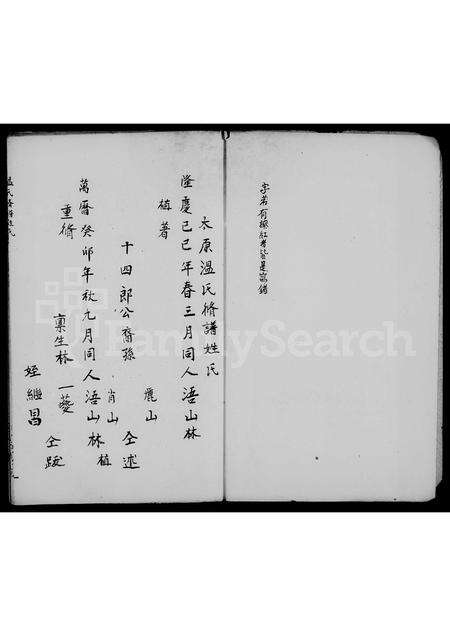 字弟有擦紅者皆是寫錯
太原溫氏脩譜姓氏
隆慶己巳年春三月同人浯山林
植著
麗山
十四郎公裔孫 仝述
肖山
萬曆癸卯年秋九月同人浯山林植
重脩
稟生林一夔
仝跋
姪繼昌
FamilySearch